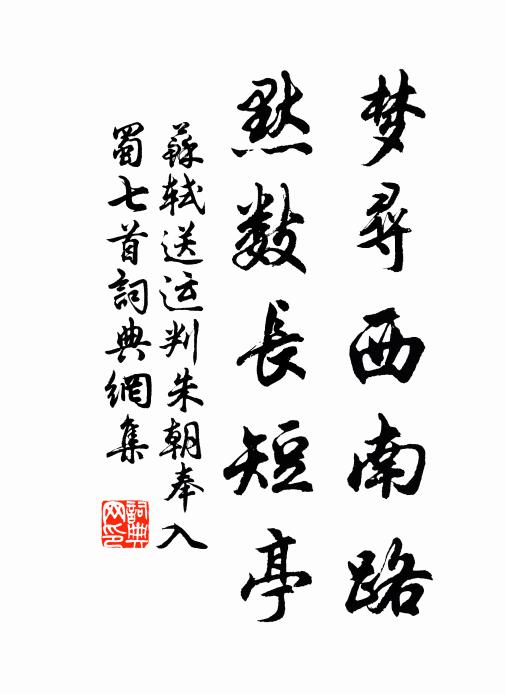 梦尋西南路
默數長短亭
蘇軾送运判朱朝奉入
蜀七首詞典網集
詞典
网印